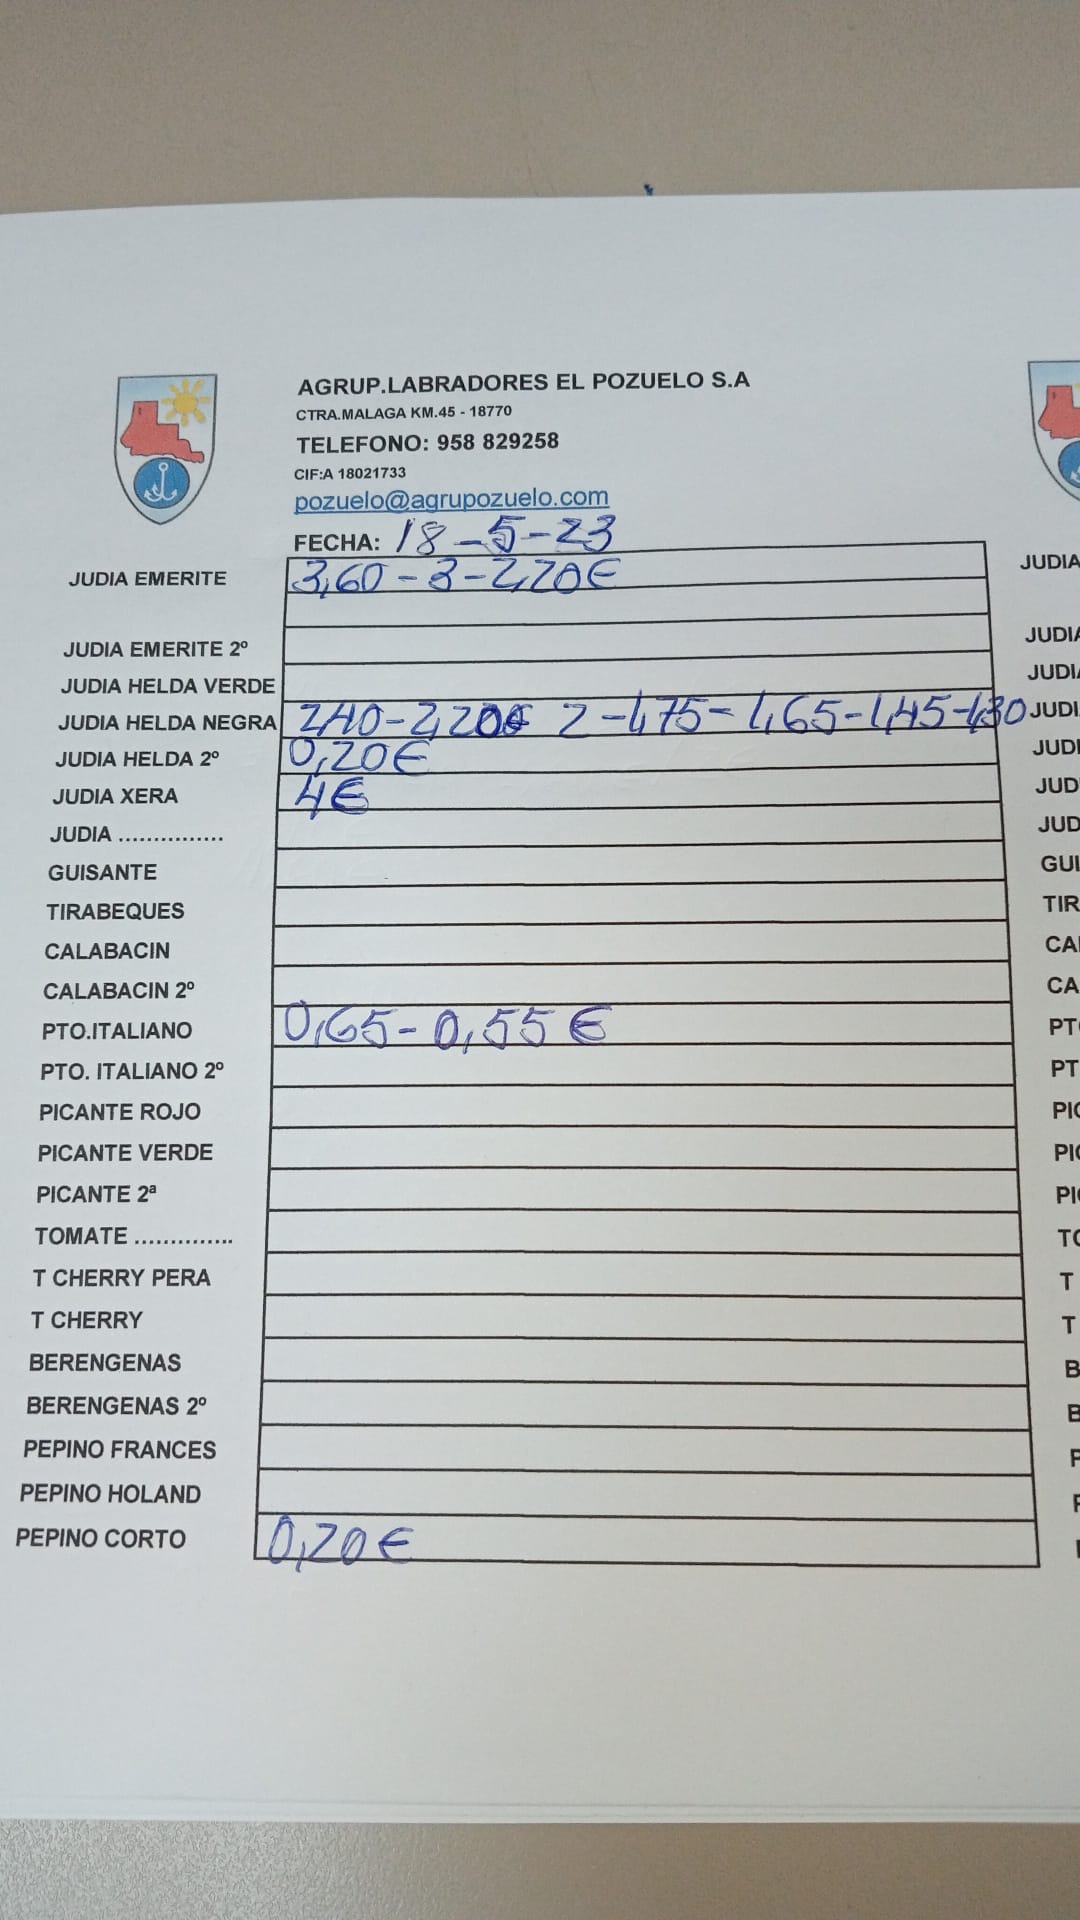 AGRUP.LABRADORES EL POZUELO S.A
CTRA.MALAGA KM.45 - 18770
TELEFONO: 958 829258
CIF:A 18021733
pozuelo@agrupozuelo.com
FECHA: 18-5-23
JUDIA EMERITE 3,60-3-2,20€
JUDIA EMERITE 2º
JUDIA HELDA VERDE
JUDIA HELDA NEGRA 2,40-2,20€ 2-1,75-1,65-1,45-1,30
JUDIA HELDA 2º 0,20€
JUDIA XERA 4€
JUDIA ...............
GUISANTE
TIRABEQUES
CALABACIN
CALABACIN 2º
PTO.ITALIANO 0,65-0,55€
PTO. ITALIANO 2º
PICANTE ROJO
PICANTE VERDE
PICANTE 2ª
TOMATE ..............
T CHERRY PERA
T CHERRY
BERENGENAS
BERENGENAS 2º
PEPINO FRANCES
PEPINO HOLAND
PEPINO CORTO 0,20€
JUDIA
JUDIA
JUDIA
JUDI
JUDI
JUD
JUD
GUI
TIR
CAL
CA
PTO
PT
PIC
PIC
PIC
TO
T
T
B
B
P
P